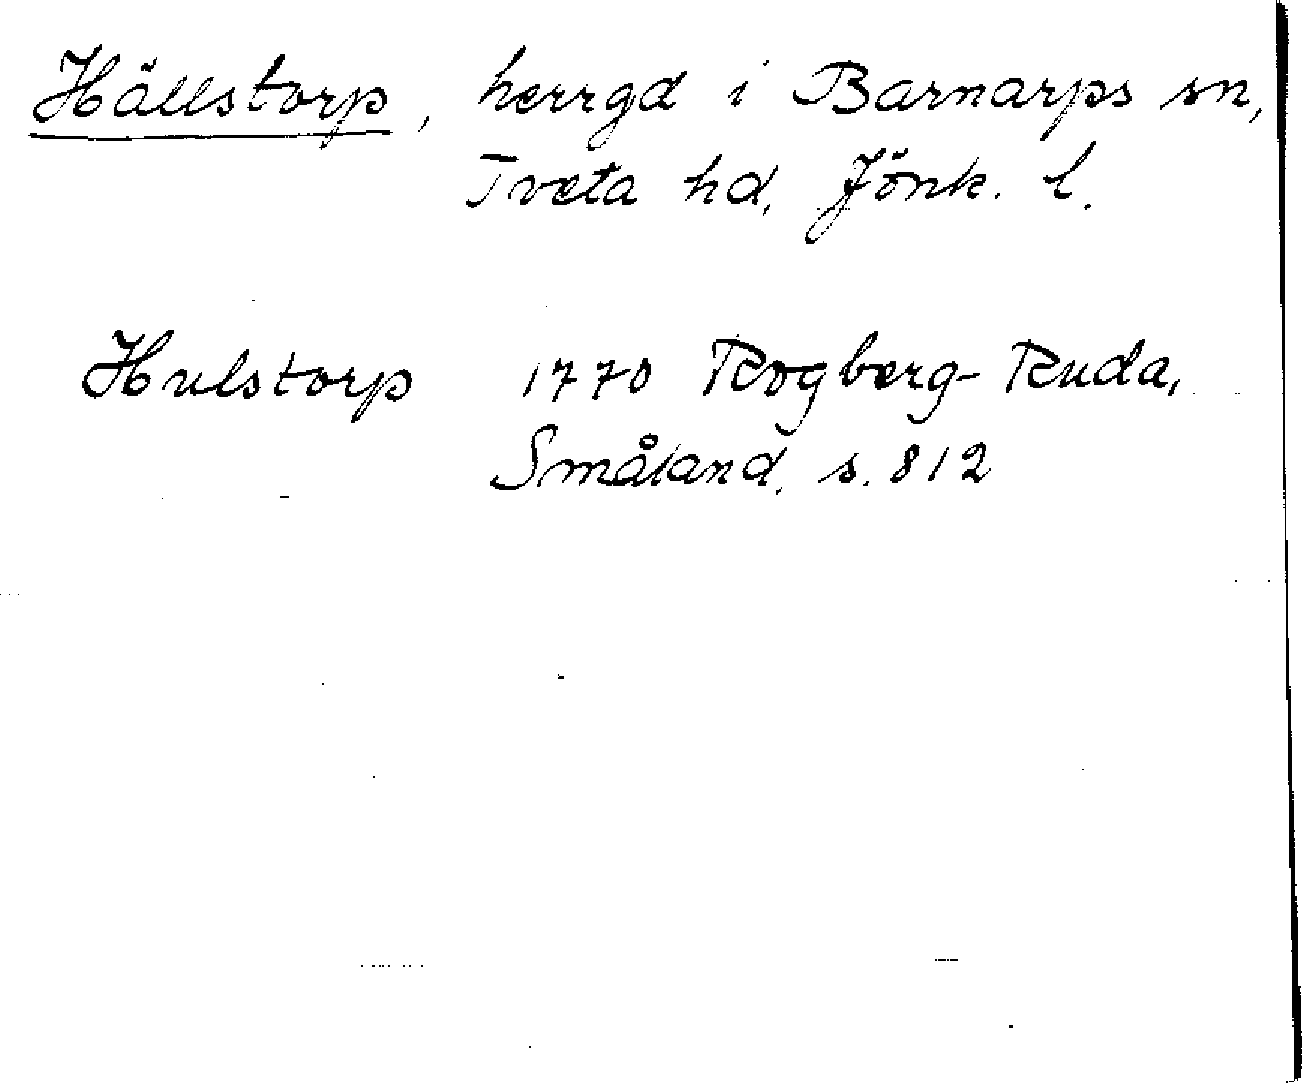 Hällstorp, herrgd i Barnarps sn,
Tveta hd, Jönk. l.
Hulstorp 1770 Rogberg-Ruda,
Småland, s. 812